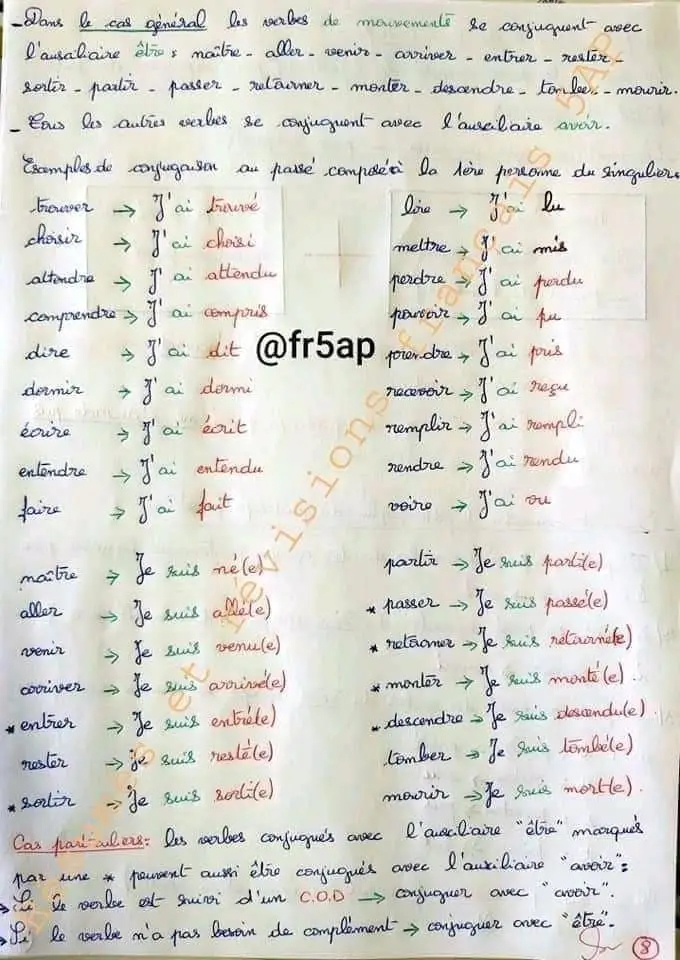 - Dans le cas général les verbes de mouvements se conjuguent avec
l'auxiliaire être : naître - aller - venir - arriver - entrer - rester -
sortir - partir - passer - retourner - monter - descendre - tomber - mourir.
- Tous les autres verbes se conjuguent avec l'auxiliaire avoir.
Exemples de conjugaison au passé composé à la 1ère personne du singulier.
trouver → J'ai trouvé
choisir → J'ai choisi
attendre → J'ai attendu
comprendre → J'ai compris
dire → J'ai dit
dormir → J'ai dormi
écrire → J'ai écrit
entendre → J'ai entendu
faire → J'ai fait
lire → J'ai lu
mettre → J'ai mis
perdre → J'ai perdu
pouvoir → J'ai pu
prendre → J'ai pris
recevoir → J'ai reçu
remplir → J'ai rempli
rendre → J'ai rendu
voire → J'ai vu
@fr5ap
naître → Je suis né(e)
aller → Je suis allé(e)
venir → Je suis venu(e)
arriver → Je suis arrivé(e)
* entrer → Je suis entré(e)
rester → je suis resté(e)
* sortir → Je suis sorti(e)
partir → Je suis parti(e)
* passer → Je suis passé(e)
* retourner → Je suis retourné(e)
* monter → Je suis monté(e).
* descendre → Je suis descendu(e)
tomber → Je suis tombé(e)
mourir → Je suis mort(e).
Cas particuliers: les verbes conjugués avec l'auxiliaire "être" marqués
par une * peuvent aussi être conjugués avec l'auxiliaire "avoir":
→ Si le verbe est suivi d'un C.O.D → conjuguer avec "avoir".
→ Si le verbe n'a pas besoin de complément → conjuguer avec "être".
8
et révisions français 5AP